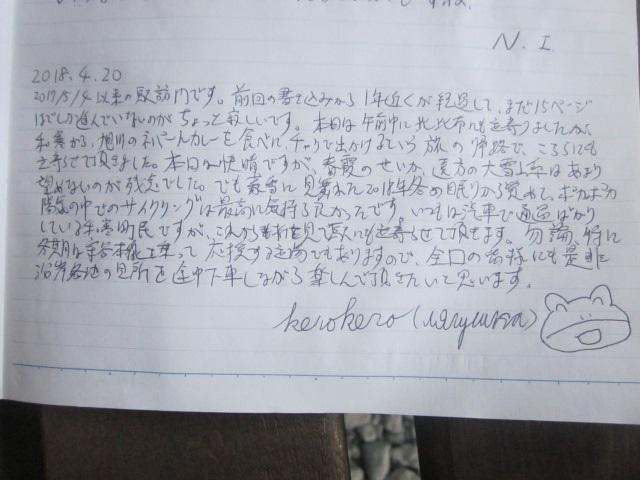 N. I.
2018.4.20
2017/5/4以来の駅訪問です。前回の書き込みから1年近くが経過して、まだ15ページ
ほどしか進んでいないのがちょっと寂しいです。本日は午前中に北比布にも立寄りましたが、
和寒から、旭川のネパールカレーを食べに、チャリで出かけるという旅の帰路で、こちらにも
立寄らせて頂きました。本日は快晴ですが、春霞のせいか、遠方の大雪山系はあまり
望めないのが残念でした。でも
2018年冬の眠りから覚めて、ポカポカ
陽気の中でのサイクリングは最高に気持ち良かったです。いつもは汽車で通過ばかり
している和寒町民ですが、これからも折を見て駅にも立寄らせて頂きます。勿論、特に
冬期は
乗って応援する立場でもありますので、全国の皆様にも是非
沿岸各地の見所を途中下車しながら楽しんで頂きたいと思います。
kerokero